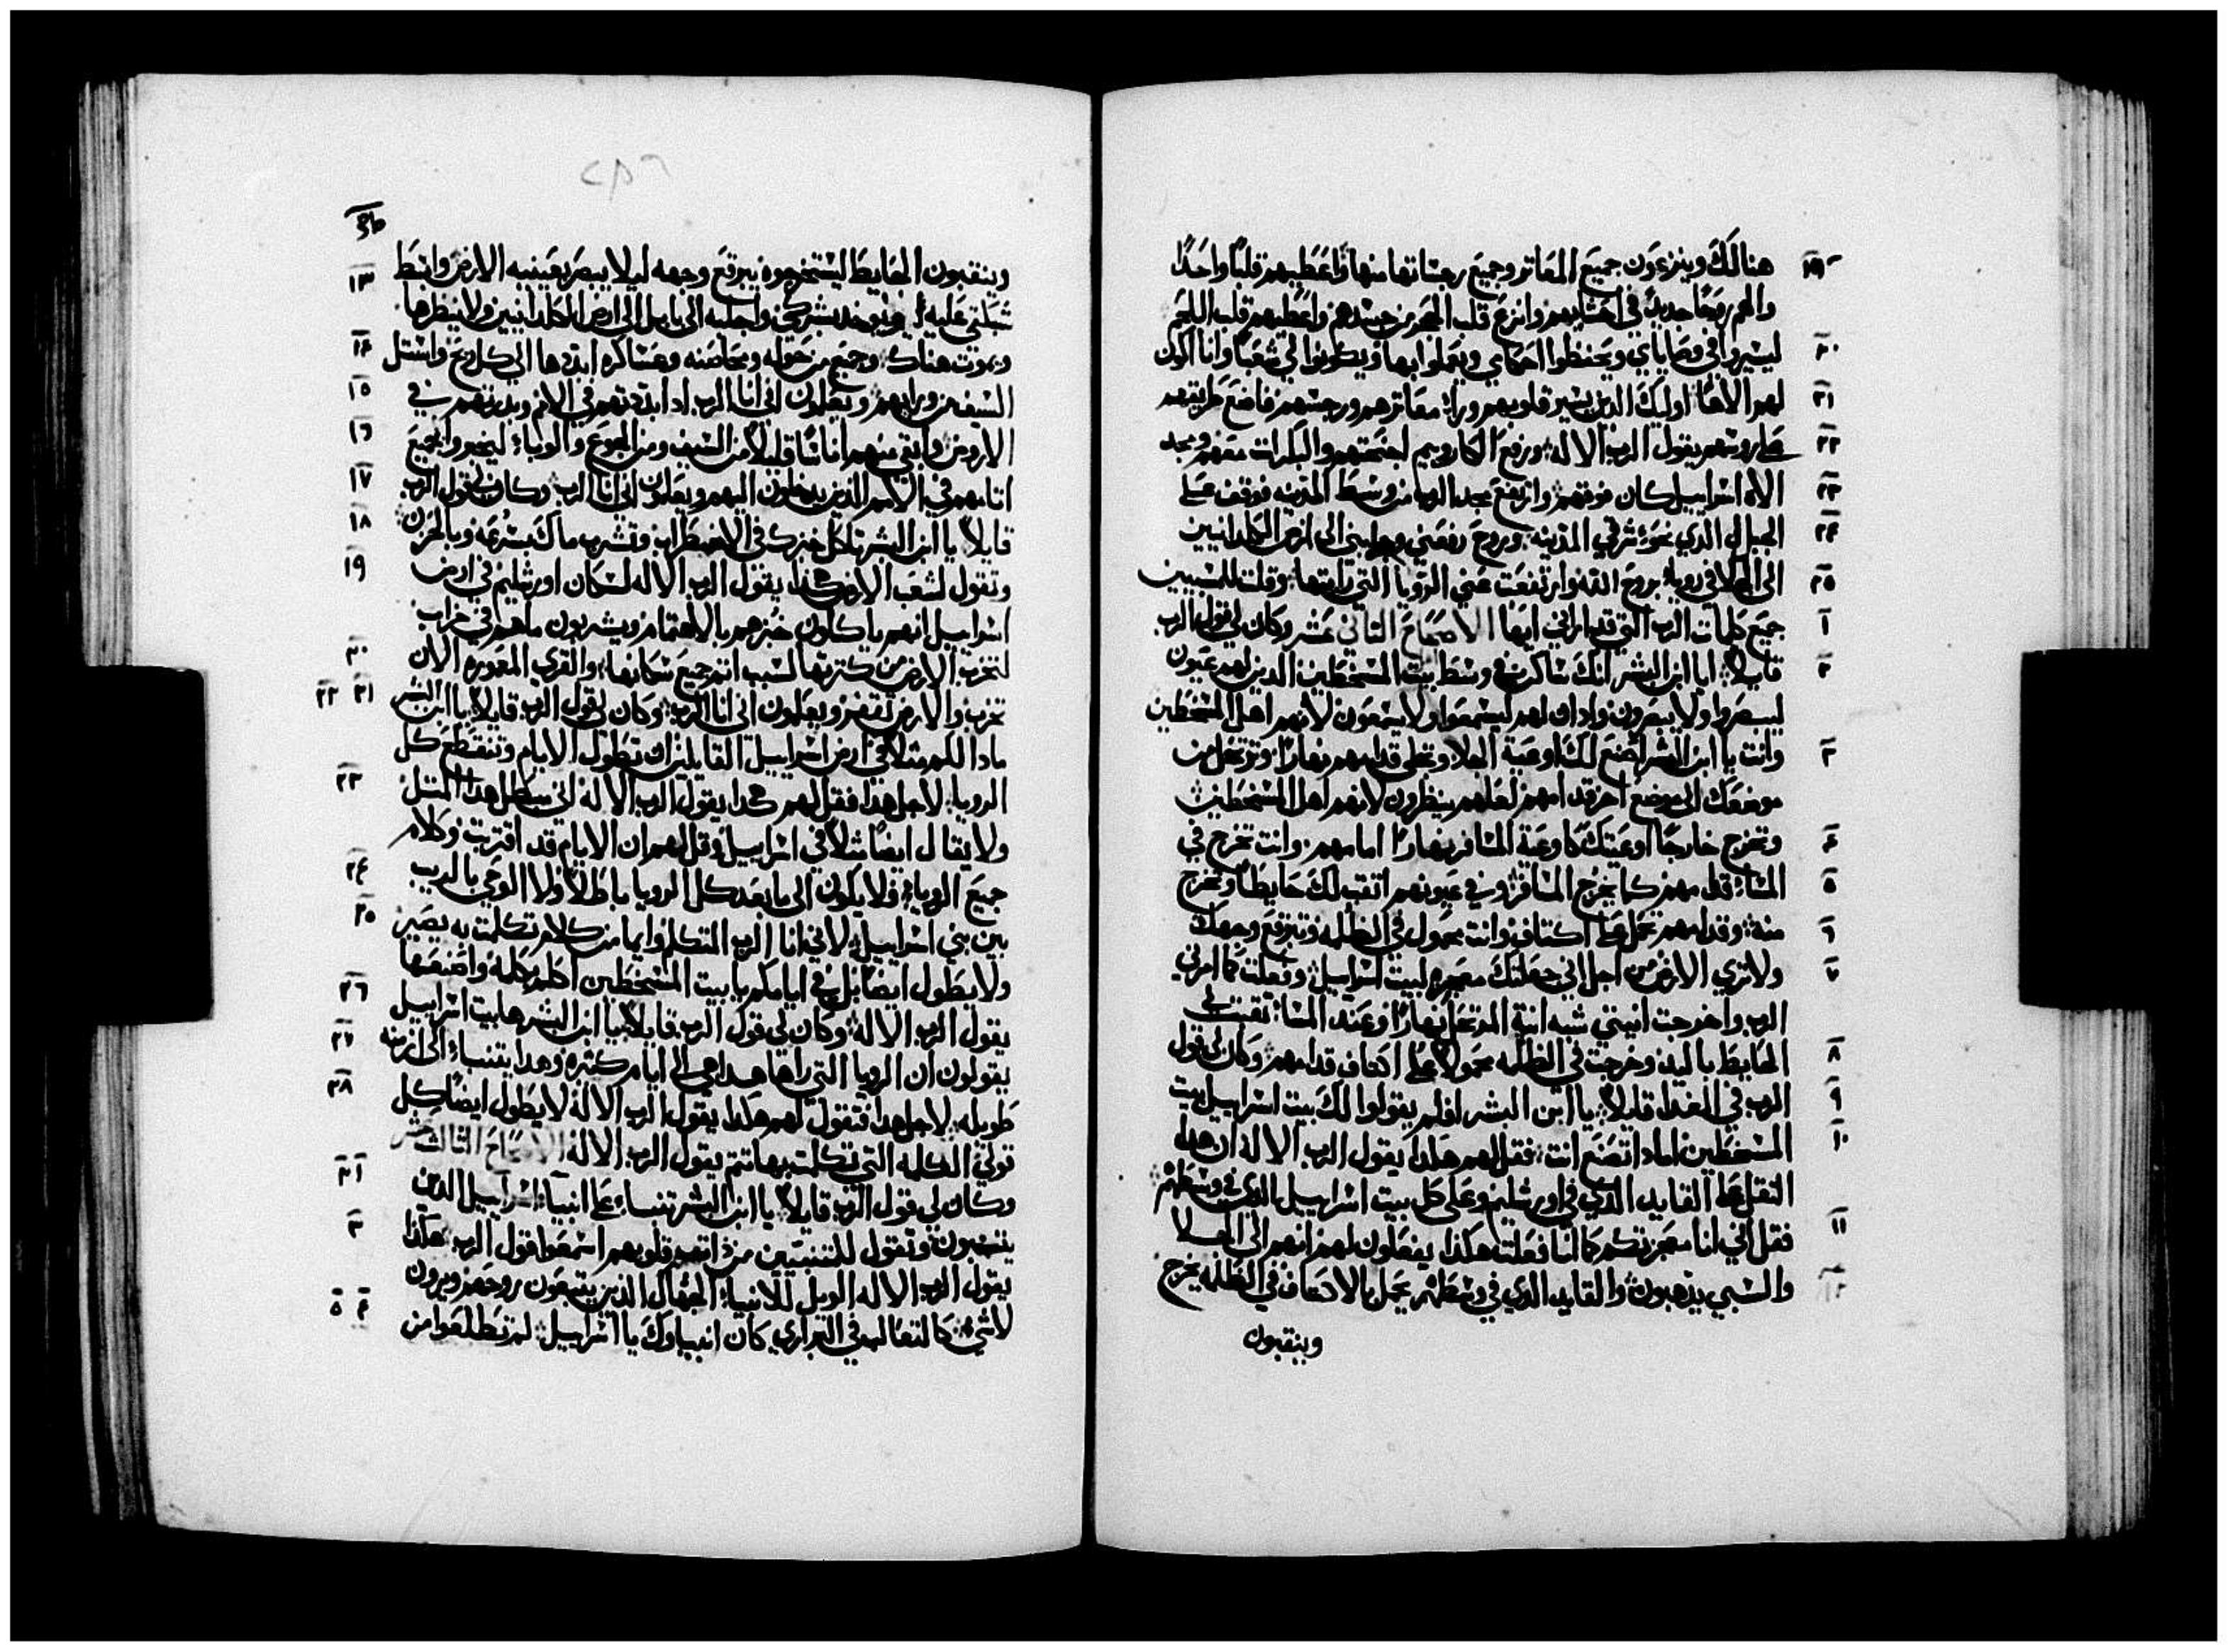 هنالك وينزعون جميع المعاثر وجميع رجساتها منها واعطيهم قلبًا واحدًا ١٩
والهم روحًا جديدًا في احشايهم وانزع قلب الحجر من جسدهم واعطيهم قلب اللحم
ليسيروا في وصاياي ويحفظوا احكامي ويعملوا بها ويكونوا لي شعبًا وانا اكون ٢٠
لهم الاهًا اوليك الذين يسير قلوبهم وراء معاثرهم ورجسهم فاضع طريقهم ٢١
على روسهم يقول الرب الاله ورفع الكاروبيم اجنحتهم والبكرات معهم ومجد ٢٢
الاه اسراييل كان فوقهم وارتفع مجد الرب من وسط المدينه فوقف على ٢٣
الجبل الذي نحو شرقي المدينه وروح رفعني وجلبني الى ارض الكلدانيين ٢٤
الى الجلا في رويا بروح الله وارتفعت عني الرويا التي رايتها وقلت للمسبيين ٢٥
جميع كلمات الرب التي قد اراني اياها الاصحاح الثاني عشر وكان لي قول الرب ١
قايلًا يا ابن البشر انك ساكن في وسط بيت المسخطين الدين لهم عيون ٢
ليبصروا ولا يبصرون وادان لهم ليسمعوا ولا يسمعون لانهم اهل المسخطين
وانت يا ابن البشر اصنع لك اوعية الجلا وتجلى قدامهم نهارًا وترتحل من ٣
موضعك الى موضع اخر قدامهم لعلهم ينظرون لانهم اهل المسخطين
وتخرج خارجًا اوعيتك كاوعية المسافر نهارًا امامهم وانت تخرج في ٤
المساء قدامهم كما يخرج المسافر وفي عيونهم اتقب لك حايطًا وتخرج ٥
منه وقدامهم تحمل على اكتاف وانت محمول في الظلمه وتبرقع وجهك ٦
ولا تري الارض من اجل اني جعلتك معجزه لبيت اسراييل وفعلت كما امرني ٧
الرب واخرجت انيتي شبه انية المرتحل نهارًا وعند المساء نقبت في
الحايط باليد وخرجت في الظلمه محمولًا على اكتاف قدامهم وكان لي قول ٨
الرب في الغداه قايلًا يا ابن البشر افلم يقولوا لك بيت اسراييل بيت ٩
المسخطين اماذا تصنع انت فقل لهم هكذا يقول الرب الاله ان هذا ١٠
الثقل على القايد الذي في اورشليم وعلى كل بيت اسراييل الذي في وسطهم
فقل اني انا معجزتكم كما انا فعلت هكذا يفعلون لهم انهم الى الجلا ١١
والسبي يذهبون والقايد الذي في وسطهم يحمل بالاكتاف في الظلمه يخرج ١٢
وينقبون
وينقبون الحايط ليستخرجوه يبرقع وجهه ليلا يبصر بعينيه الارض وابسط ١٣
شبكتي عليه ويوخد بشركي واجلبه الى بابل الى ارض الكلدانيين ولا ينظرها
ويموت هناك وجميع من حوله ومحاضنه وعساكره ابددها الى كل ريح واستل ١٤
السيف من ورايهم ويعلمون اني انا الرب اذا ابددتهم في الامم وبددتهم في ١٥
الارض وابقي منهم اناسًا قليلًا من السيف ومن الجوع والوباء ليخبروا بجميع ١٦
اثامهم في الامم الذين يدخلون اليهم ويعلمون اني انا الرب وكان لي قول الرب ١٧
قايلًا يا ابن البشر تاكل خبزك في الاضطراب وتشرب ماك بسرعه وبالحزن ١٨
وتقول لشعب الارض هكذا يقول الرب الاله لسكان اورشليم في ارض ١٩
اسراييل انهم ياكلون خبزهم بالاهتمام ويشربون ماهم في خراب
لتخرب الارض من كثرتها لسبب اثم جميع سكانها والقري المعموره الان ٢٠
تخرب والارض تقفر ويعلمون اني انا الرب وكان لي قول الرب قايلًا يا ابن البشر ٢١ ٢٢
ماذا لكم مثلًا في ارض اسراييل القايلين ان تطول الايام وتنقطع كل
الرويا لاجل هذا فقل لهم هكذا يقول الرب الاله اني سابطل هذا المثل ٢٣
ولا يقال ايضًا مثلًا في اسراييل وقل لهم ان الايام قد اقتربت وكلام
جميع الرويا فلا يكون الى ما بعد كل الرويا باطلًا ولا الوحي بالريب ٢٤
بين بني اسراييل لاني انا الرب المتكلم وايما من كلام تكلمت به يصير ٢٥
ولا يطول ايضًا بل في ايامكم يا بيت المسخطين اكلم كلمة واصنعها
يقول الرب الاله وكان لي قول الرب قايلًا يا ابن البشر ها بيت اسراييل ٢٦
يقولون ان الرويا التي راها هذا هي الى ايام كثيره وهذا يتنبا الى ازمنه ٢٧
طويله لاجل هذا فتقول لهم هكذا يقول الرب الاله لا يطول ايضًا كل ٢٨
قولي الكلمه التي تكلمت بها تتم يقول الرب الاله الاصحاح الثالث عشر
وكان لي قول الرب قايلًا يا ابن البشر تنبا على انبياء اسراييل الدين ١ ٢
يتنبون وتقول للمتنبيين من ذات قلوبهم اسمعوا قول الرب هكذا ٣
يقول الرب الاله الويل للانبياء الجهال الذين يتبعون روحهم ويرون
لا شي كالثعالب في البراري كان انبياوك يا اسراييل لم تطلعوا من ٤ ٥